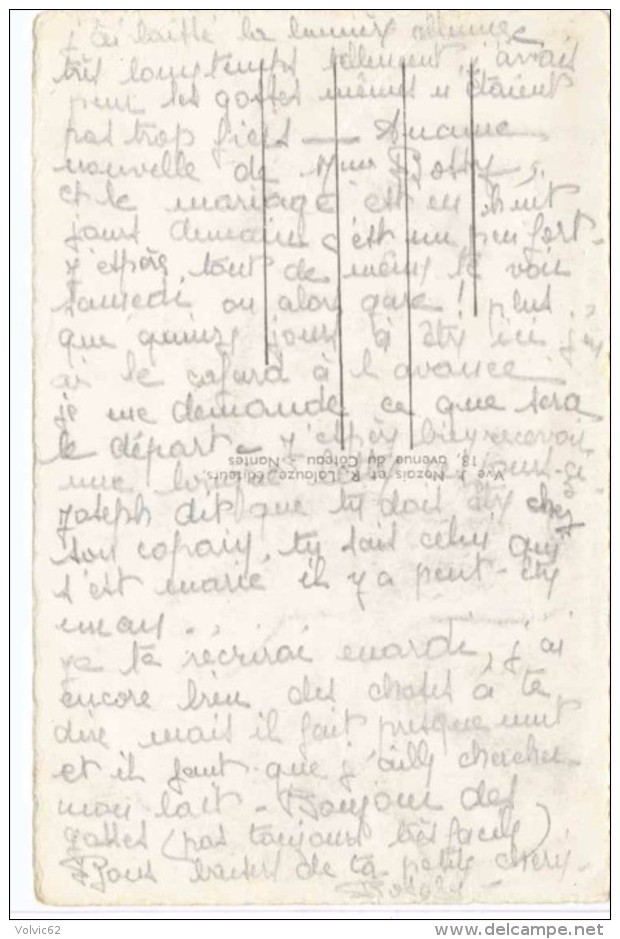 j'ai laissé la lumière allumée
très longtemps tellement j'avais
peur les gosses mêmes n'étaient
pas trop fiers — Aucune
nouvelle de Mme
et le mariage est en huit
jours demain c'est un peu fort -
j'espère tout de même le voir
samedi ou alors gare ! plus
que quinze jours à être ici j'en
ai le cafard à l'avance
je me demande ce que sera
le départ - j'espère bien recevoir
une ces jours-ci
Joseph dit que tu dois être chez
son copain, tu sais celui qui
s'est marié il y a peut-être
un an.
Je te récrirai mardi, j'ai
encore bien des choses à te
dire mais il fait presque nuit
et il faut que j'aille chercher
mon lait - Bonjour des
gosses (pas toujours très faciles)
Bons baisers de ta petite chérie
Vve J. Nozais et R. Lalouze, éditeurs,
13, avenue du Coteau - Nantes
Volvic62
www.delcampe.net